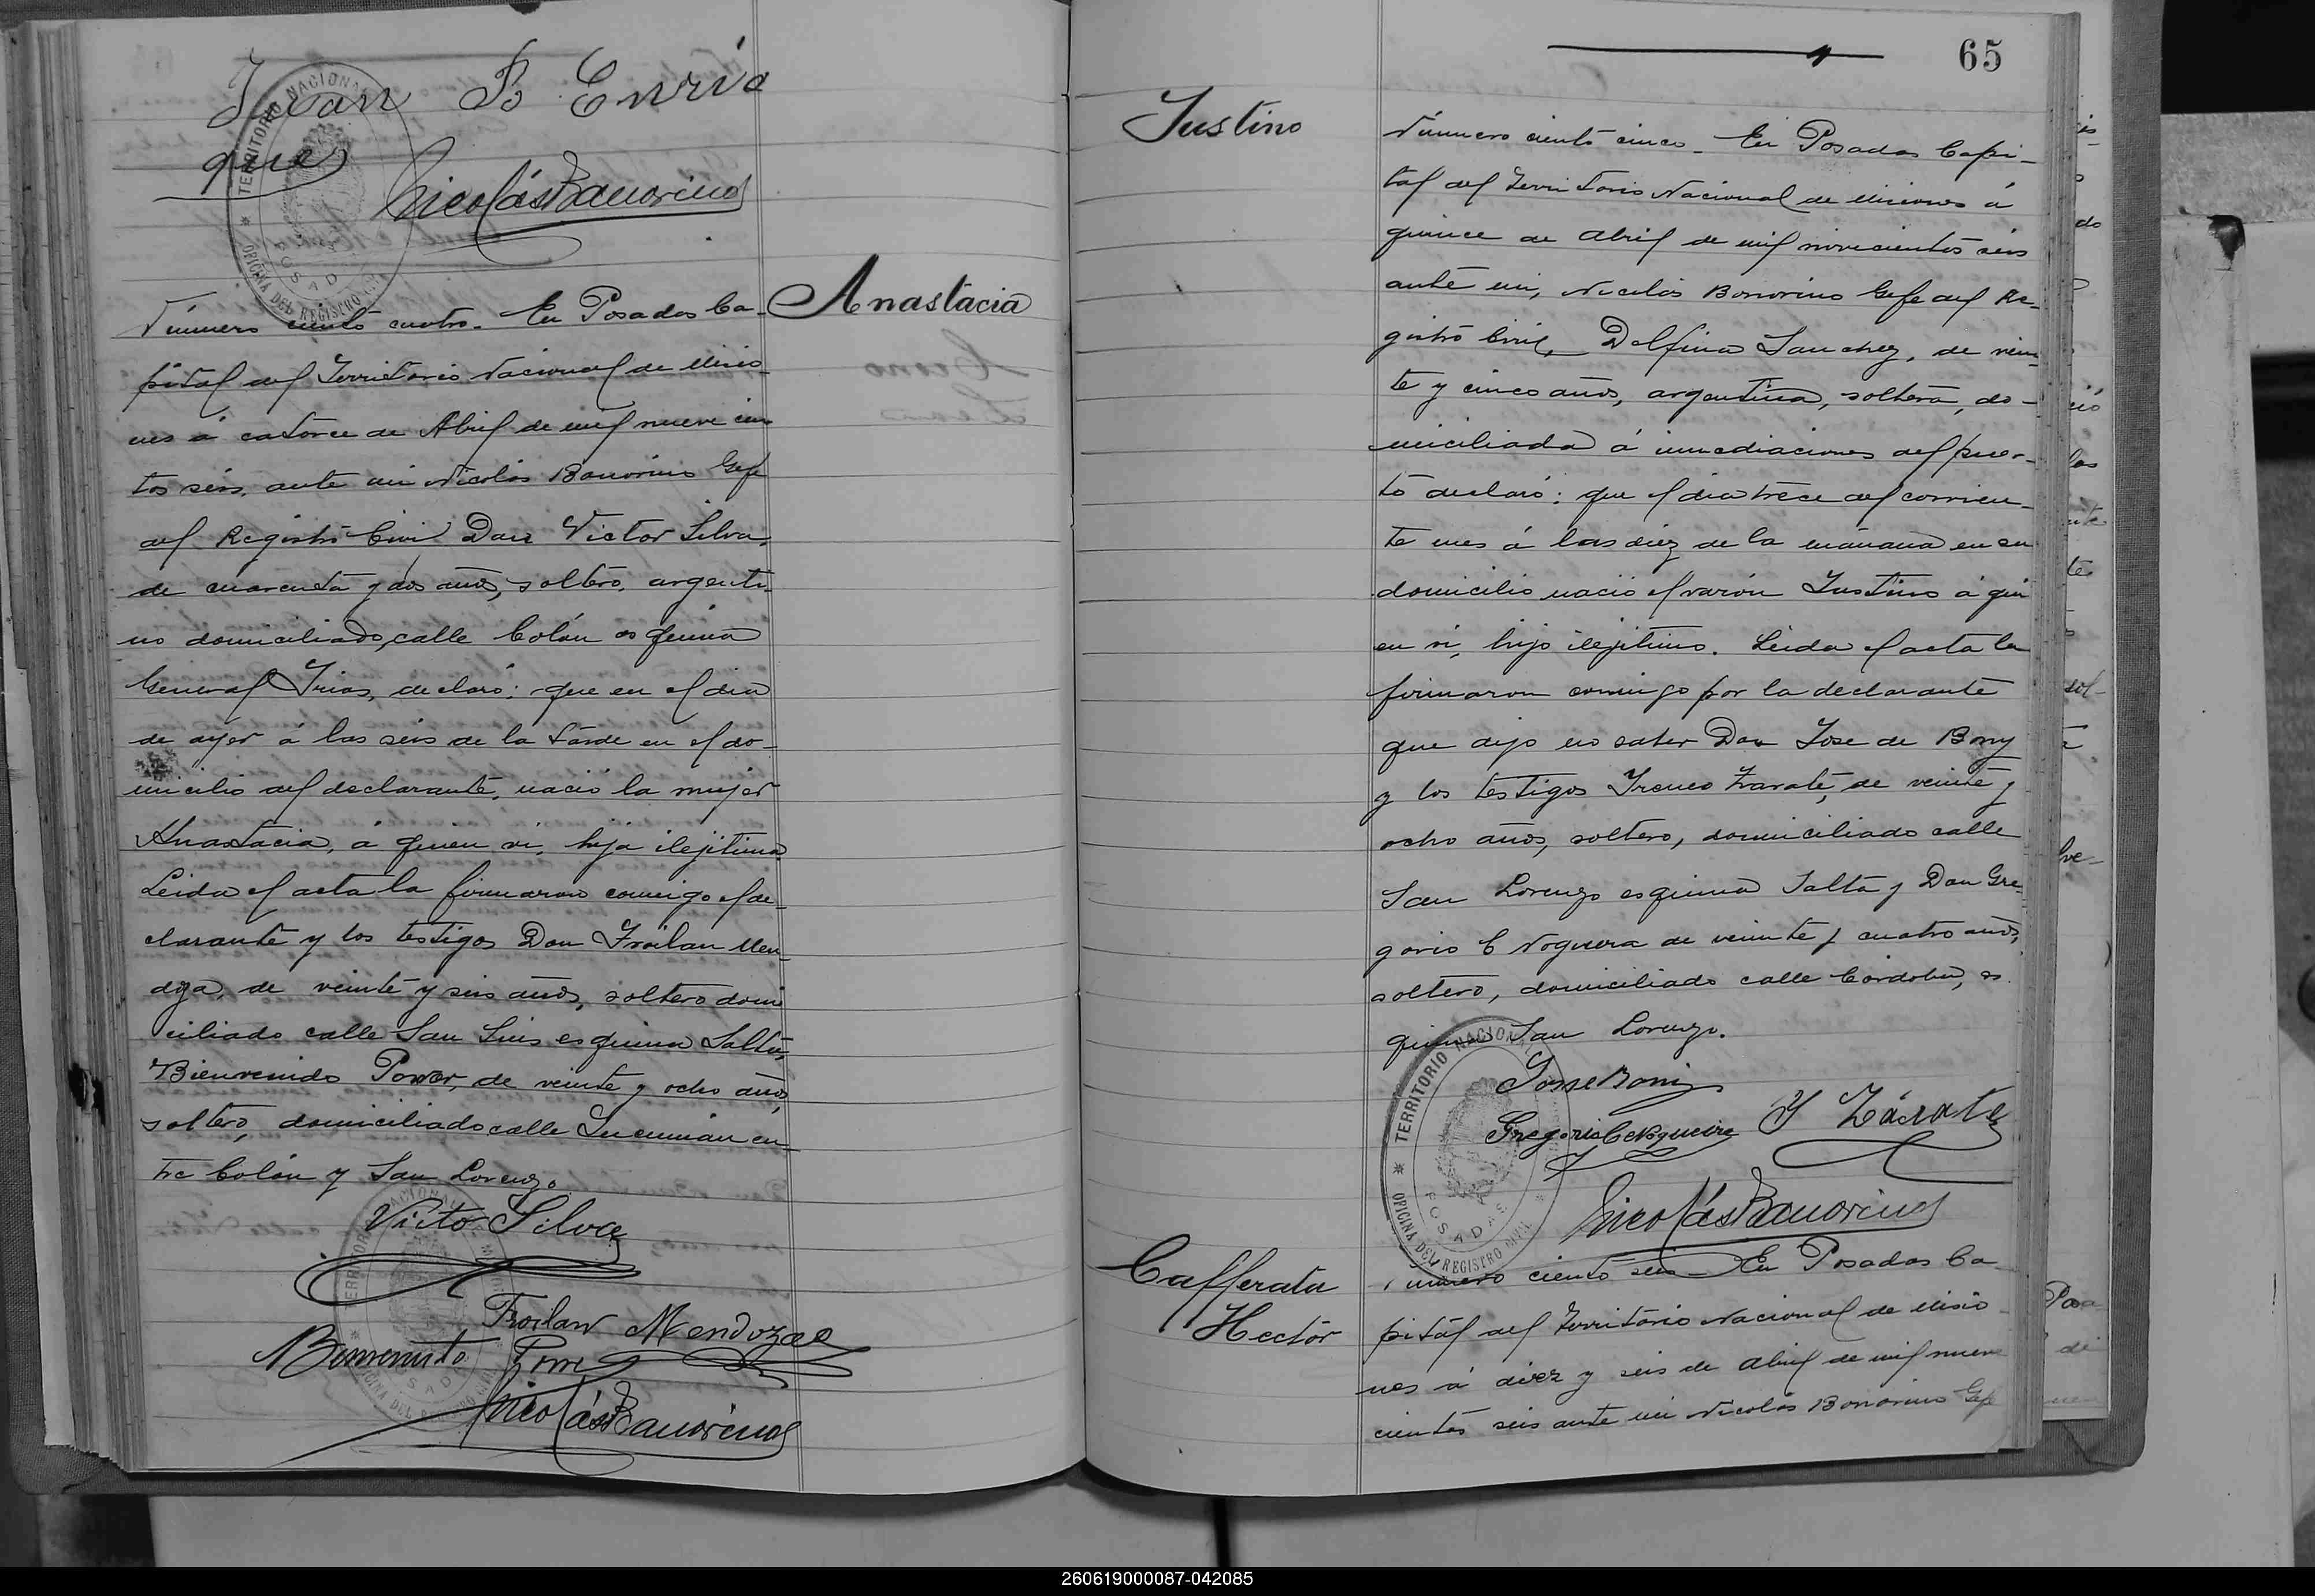 Juan B Enri
que
Nicolás Bonorino
TERRITORIO NACIONAL
POSADAS
OFICINA DEL REGISTRO CIVIL
Anastacia
Número ciento cuatro. En Posadas Ca-
pital del Territorio Nacional de Misio-
nes á catorce de Abril de mil nueve cien
tos seis, ante mi Nicolás Bonorino Gefe
del Registro Civil Don Victor Silva,
de cuarenta y dos años, soltero, argenti-
no domiciliado, calle Colón esquina
General Frias, declaró: que en el dia
de ayer á las seis de la tarde en el do-
micilio del declarante, nació la mujer
Anastacia, á quien vi, hija ilejitima
Leida el acta la firmaron comigo el de-
clarante y los testigos Don Froilan Men-
doza, de veinte y seis años, soltero domi
ciliado calle San Luis esquina Salta,
Bienvenido Power, de veinte y ocho años,
soltero, domiciliado calle Tucumán en-
tre Colón y San Lorenzo
Victo Silva
Froilan Mendoza
Nicolás Bonorino
65
Justino
Número ciento cinco. En Posadas Capi-
tal del Territorio Nacional de Misiones á
quince de Abril de mil novecientos seis
ante mi, Nicolás Bonorino Gefe del Re-
gistro Civil, Delfina Sanchez, de vein
te y cinco años, argentina, soltera, do-
miciliada á inmediaciones del puer-
to declaró: que el dia trece del corrien-
te mes á las diez de la mañana en su
domicilio nació el varón Justino á qui
en vi, hijo ilejitimo. Leida el acta la
firmaron comigo por la declarante
que dijo no saber Don Jose de Bony
y los testigos Ireneo Zarate, de veinte y
ocho años, soltero, domiciliado calle
San Lorenzo esquina Salta y Don Gre
gorio C Noguera de veinte y cuatro años,
soltero, domiciliado calle Córdoba, es
quina San Lorenzo.
Gregorio C Nogueira
Y Zárate
Nicolás Bonorino
TERRITORIO NACIONAL
POSADAS
OFICINA DEL REGISTRO CIVIL
Cafferata
Hectór
Numero ciento seis En Posadas Ca
pital del Territorio Nacional de Misio
nes á diez y seis de Abril de mil nueve
cientos seis ante mi Nicolás Bonorino Gefe
260619000087-042085